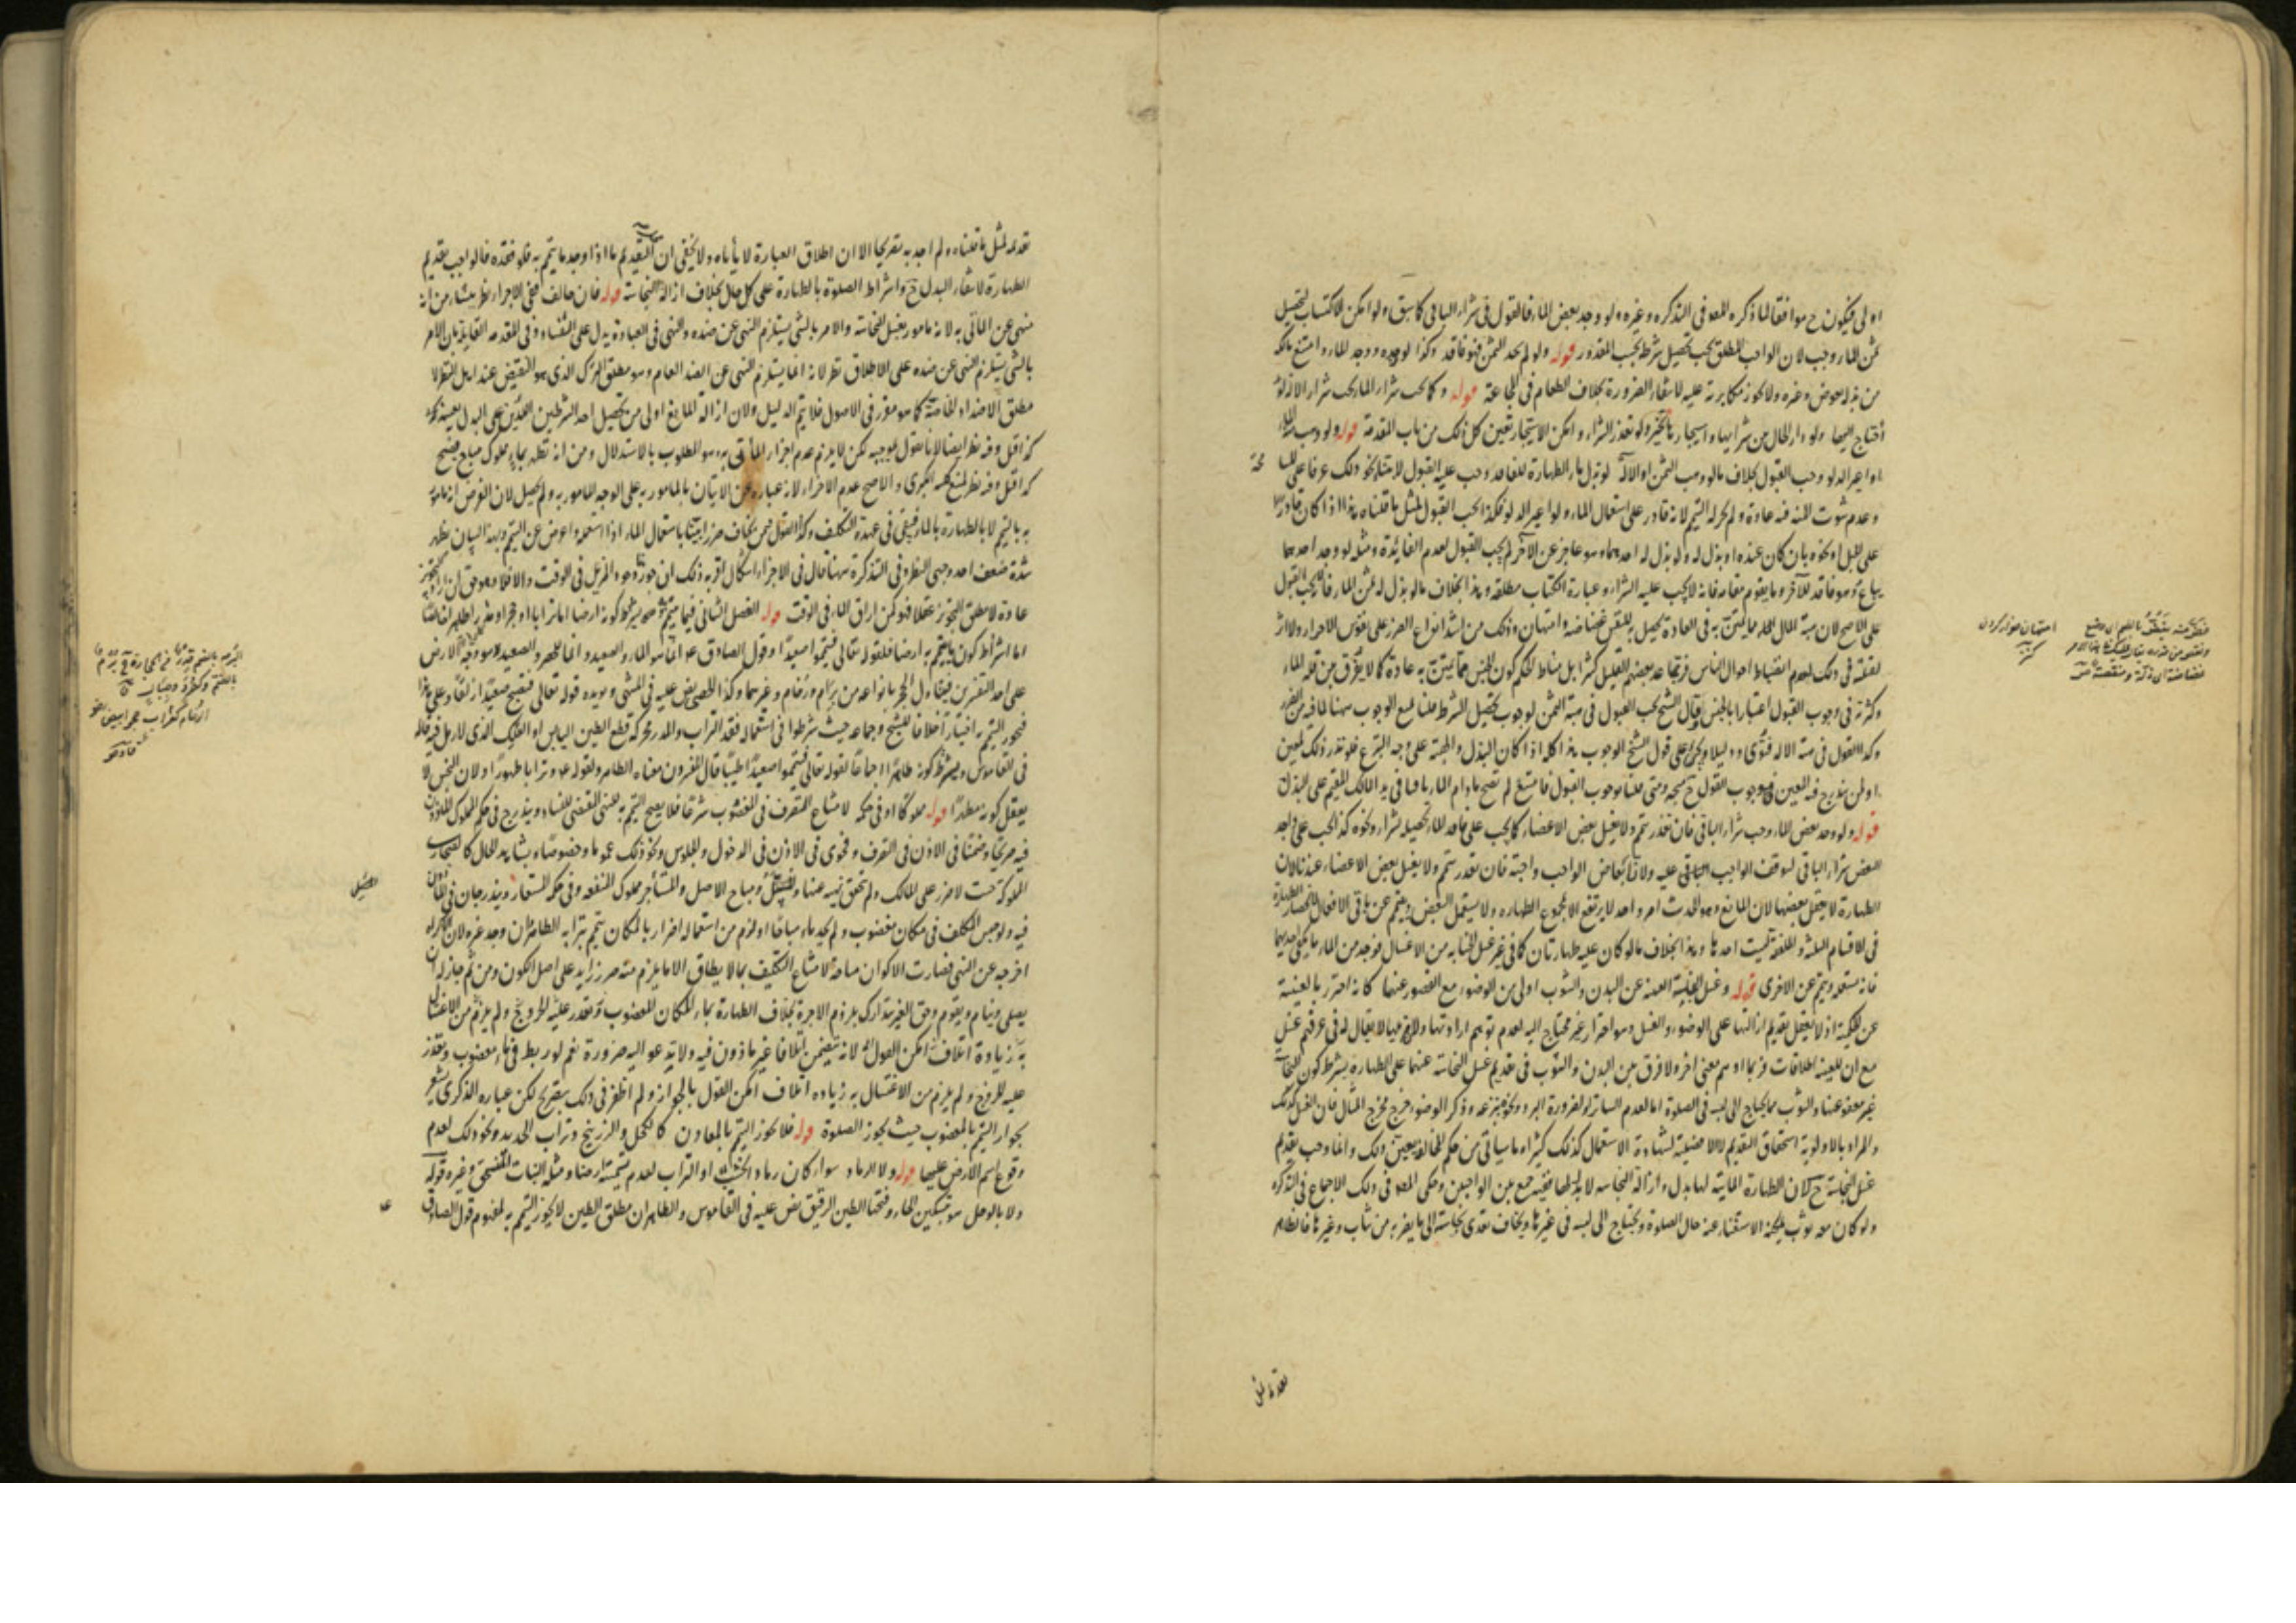 اولى فيكون ح موافقا لما ذكره المصـ في التذكره وغيره ولو وجد بعض الماء فالقول في شراء الباقي كما سبق ولو امكن الاكتساب لتحصيل
ثمن الماء وجب لان الواجب المطلق يجب تحصيل شرطه بحسب المقدور قوله ولو لم يجد الثمن فهو فاقد وكذا لو وجده ووجد الماء وامتنع مالكه
من بذله بعوض وغيره ولا يجوز مكابرته عليه لانتفاء الضرورة بخلاف الطعام في المجاعة قوله وكما يجب شراء الماء يجب شراء الالة لو
احتاج اليها ولو دار الحال بين شرائها واستيجارها تخير ولو تعذر الشراء وامكن الاستيجار تعين كل ذلك من باب المقدمة قوله ولو وهب له الماء
او اعير الدلو وجب القبول بخلاف ما لو وهب الثمن او الالة لو بذل ماء الطهارة للفاقد وجب عليه القبول
وعدم ثبوت المنه فيه عادة ولم يجز له التيمم لانه قادر على استعمال الماء ولو اعير الدلو فكذا يجب القبول لمثل ما قلناه هذا اذا كان قادرا
على الحبل او نحوه بان كان عنده او بذل له ولو بذل له احدهما وهو عاجز عن الآخر لم يجب القبول لعدم الفائدة ومثله لو وجد احدهما
يباع وهو فاقد للآخر وما يقوم مقامه فانه لا يجب عليه الشراء وعبارة الكتاب مطلقه وهذا بخلاف ما لو بذل له ثمن الماء فانه لا يجب القبول
على الاصح لان هبة المال لله مما يمتن به في العادة ويحصل به للنفس غضاضة وامتهان وذلك من اشد انواع الضرر على نفوس الاحرار ولا اثر
لقلته في ذلك لعدم انضباط احوال الناس فربما عد بعضهم القليل كثيرا بل مناط الحكم كون الجنس مما يمتن به عادة كما لا يفرق بين قلة الماء
وكثرته في وجوب القبول اعتبارا بالجنس وقال الشيخ يجب القبول في هبة الثمن لوجوب تحصيل الشرط قلنا نمنع الوجوب ههنا لما فيه من الضرر
وكذا القول في هبة الالة فتوى ودليلا ويجري على قول الشيخ الوجوب هذا كله اذا كان البذل والهبة على وجه التبرع فلو نذر ذلك لمعين
او لمن يندرج فيه المعين فوجوب القول ح متجه ومتى قلنا بوجوب القبول فامتنع لم تصح ما دام الماء باقيا في يد المالك المقيم على البذل
قوله ولو وجد بعض الماء وجب شراء الباقي فان تعذر تيمم ولا يغسل بعض الاعضاء كما يجب على فاقد الماء تحصيله بشراء ونحوه كذا يجب على واجد
البعض شراء الباقي لتوقف الواجب الباقي عليه ولان ابعاض الواجب واجبة فان تعذر تيمم ولا يغسل بعض الاعضاء عندنا لان
الطهارة لا يحصل ببعضها لان المانع وهو الحدث امر واحد لا يرتفع الا بمجموع الطهارة ولا يستعمل البعض ويتيمم عن باقي الافعال لانحصار الطهارة
في الاقسام الثلثة والملفقة ليست احدها وهذا بخلاف ما لو كان عليه طهارتان كما في غير غسل الجنابه من الاغسال فوجد من الماء ما يكفي احديهما
فانه يستعمله ويتيمم عن الاخرى قوله وغسل النجاسة العينه عن البدن والثوب اولى من الوضوء مع القصور عنهما كانه احترز بالعينية
عن الحكمية اذ لا يعقل تقديم ازالتها على الوضوء والغسل وهو احتراز غير محتاج اليه لعدم توهم ارادتها
مع ان للعينه اطلاقات فربما اوهم معنى آخر ولا فرق بين البدن والثوب في تقديم غسل النجاسة عنهما على الطهارة بشرط كون النجاسة
غير معفو عنها والثوب مما يحتاج الى لبسه في الصلوة اما لعدم الساتر او لضرورة البرد ونحوه وذكر الوضوء خرج مخرج المثال فان الغسل كذلك
والمراد بالاولوية استحقاق التقديم لا الافضلية لشهادة الاستعمال كذلك كثيرا وما سيأتي من حكم المخالفة يعين ذلك وانما وجب تقديم
غسل النجاسة ح لان الطهارة المائية لها بدل وازالة النجاسه لا بدل لها فيجمع بين الواجبين وحكى المصـ في ذلك الاجماع في التذكره
ولو كان معه ثوب يمكنه الاستغناء عنه حال الصلوة ويحتاج الى لبسه في غيرها ويخاف تعدي نجاسته الى ما يقربه من ثياب وغيرها فالظاهر
امتهان خوار كردن
كنز
تقدمه لمثل
تقدمه لمثل ما قلناه ولم اجد به تصريحا الا ان اطلاق العبارة لا يأباه ولا يخفى ان التقديم ما اذا وجد ما يتيمم به فلو فقده فالواجب تقديم
الطهارة لانتفاء البدل ح واشتراط الصلوة بالطهارة على كل حال بخلاف ازالة النجاسة قوله فان خالف ففي الاجزاء نظر ينشأ من انه
منهي عن المأتي به لانه مأمور بغسل النجاسة والامر بالشيء يستلزم النهي عن ضده والنهي في العبادة يدل على الفساد وفي المقدمه القايلة بان الامر
بالشيء يستلزم النهي عن ضده على الاطلاق نظر لانه انما يستلزم النهي عن الضد العام وهو مطلق الترك الذي هو النقيض عند اهل النظر لا
مطلق الاضداد الخاصة كما هو مقرر في الاصول فلا يتم الدليل ولان ازالة المانع اولى من تحصيل احد الشرطين
كذا قيل وفيه نظر ايضا لانا نقول بموجبه لكن لا يلزم عدم اجزاء المأتي به وهو المطلوب بالاستدلال ومن انه تطهر بماء مملوك مباح فيصح
كذا قيل وفيه نظر لمنع كلية الكبرى والاصح عدم الاجزاء لانه عبارة عن الاتيان بالمأمور به على الوجه المأمور به ولم يحصل لان الفرض انه مأمور
به بالتيمم لا بالطهارة بالماء فيبقى في عهدة التكليف وكذا القول فيمن يخاف ضررا باستعمال الماء اذا استعمله واعرض عن التيمم وبهذا البيان يظهر
شدة ضعف احد وجهي النظر وفي التذكرة ههنا قال في الاجزاء اشكال اقربه ذلك ان جوز وجود المزيل في الوقت والا فلا
عادة لا مطلق التجويز عقلا فهو كمن اراق الماء في الوقت قوله الفصل الثاني فيما يتيمم به ويشترط كونه ارضا اما ترابا او حجرا او مدرا طاهرا خالصا
اما اشتراط كون ما يتيمم به ارضا فلقوله تعالى فتيمموا صعيدا وقول الصادق عه انما هو الماء والصعيد وانما للحصر والصعيد هو وجه الارض
على احد التفسيرين فيتناول الحجر بانواعه من برام ورخام وغيرهما وكذا الحصى نص عليه في المنتهى ويؤيده قوله تعالى فتصبح صعيدا زلقا وعلى هذا
فيجوز التيمم به اختيارا خلافا للشيخ وجماعه حيث شرطوا في استعماله فقد التراب والمدر محركه قطع الطين اليابس او العلك الذي لا رمل فيه قاله
في القاموس ويشترط كونه طاهرا اجماعا لقوله تعالى فتيمموا صعيدا طيبا قال المفسرون معناه الطاهر ولقوله عه وترابا طهورا ولان النجس لا
يعقل كونه مطهرا قوله مملوكا او في حكمه لامتناع التصرف في المغصوب شرعا فلا يصح التيمم به للنهي المقتضي للفساد ويندرج في حكم المملوك المأذون
فيه صريحا وضمنا في الاذن في التصرف وفحوى في الاذن في الدخول والجلوس ونحو ذلك عموما وخصوصا وبشاهد الحال كالصحاري
المملوكة حيث لا ضرر على المالك ولم يتحقق نهيه عنها ومباح الاصل والمستأجر مملوك المنفعه وفي حكمه المستعار ويندرجان في المأذون
فيه ولو حبس المكلف في مكان مغصوب ولم يجد ماء مباحا او لزم من استعماله اضرار بالمكان تيمم بترابه الطاهر وان وجد غيره لان الاكراه
اخرجه عن النهي فصارت الاكوان مباحة لامتناع التكليف بما لا يطاق الا ما يلزم منه ضرر زايد على اصل الكون ومن ثم جاز له ان
يصلي وينام ويقوم وحق الغير يتدارك بلزوم الاجرة بخلاف الطهارة بماء المكان المغصوب
لانه يتضمن اتلافا غير مأذون فيه ولا تدعو اليه ضرورة نعم لو ربط في ماء مغصوب وتعذر
عليه الخروج ولم يلزم من الاغتسال به زيادة اتلاف امكن القول بالجواز ولم اظفر في ذلك بتصريح لكن عباره الذكرى يشعر
بجواز التيمم بالمغصوب حيث يجوز الصلوة قوله فلا يجوز التيمم بالمعادن كالكحل والزرنيخ وتراب الحديد ونحو ذلك لعدم
وقوع اسم الارض عليها قوله ولا الرماد سواء كان رماد الخشب او التراب لعدم تسميته ارضا ومثله النبات المنسحق وغيره قوله
ولا بالوحل هو بتسكين الحاء وفتحها الطين الرقيق نص عليه في القاموس والظاهر ان مطلق الطين لا يجوز التيمم به لمفهوم قول الصادق
عه